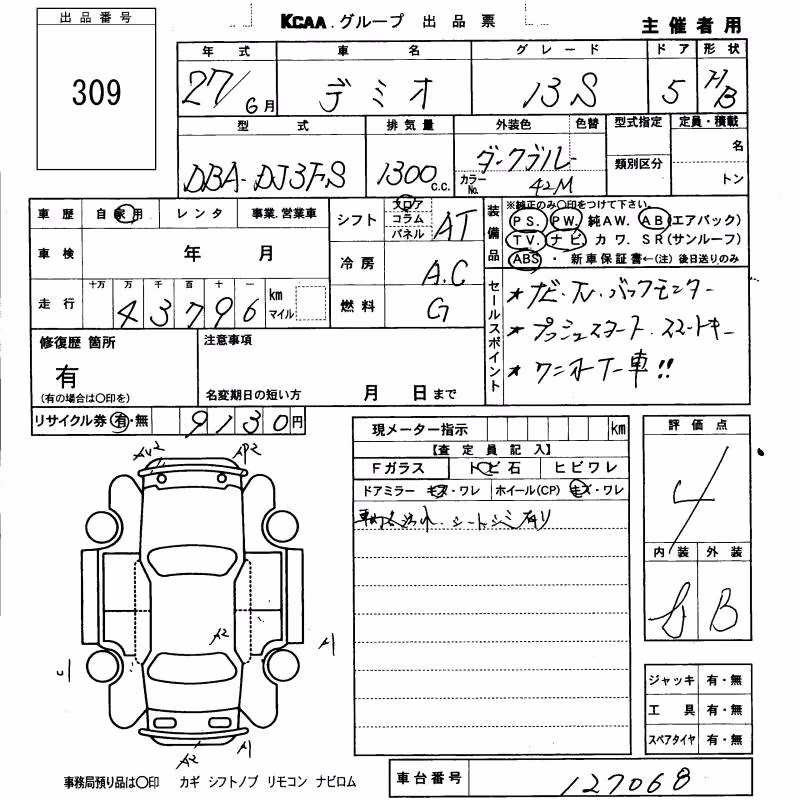 出品番号
KCAA.グループ 出品票
主催者用
309
年式 車名 グレード ドア 形状
27/6月 デミオ 13S 5 H/B
型式 排気量 外装色 色替 型式指定 定員・積載
DBA-DJ3FS 1300c.c. ダークブルー 類別区分 名
カラーNo. 42M トン
車歴 自家用 レンタ 事業.営業車
シフト フロア コラム パネル AT
装備品
※純正のみ〇印をつけて下さい。
PS. PW. 純AW. AB(エアバック)
TV. ナビ. カワ. SR(サンルーフ)
ABS・新車保証書←(注)後日送りのみ
車検 年 月
冷房 A.C
走行 十万 万 千 百 十 一
43796 km マイル
燃料 G
セールスポイント
★ナビ.TV.バックモニター
★プッシュスタート.スマートキー
★ワンオーナー車!!
修復歴 箇所
有
(有の場合は〇印を)
注意事項
名変期日の短い方 月 日まで
リサイクル券 有・無 9130円
現メーター指示 km
【査定員記入】
Fガラス トビ石 ヒビワレ
ドアミラー キズ・ワレ ホイール(CP) キズ・ワレ
車内汚れ.シートシミ有り
評価点
4
内装 外装
B
AP2
A2
A1
A1
A2
ジャッキ 有・無
工具 有・無
スペアタイヤ 有・無
事務局預り品は〇印 カギ シフトノブ リモコン ナビロム
車台番号 127068